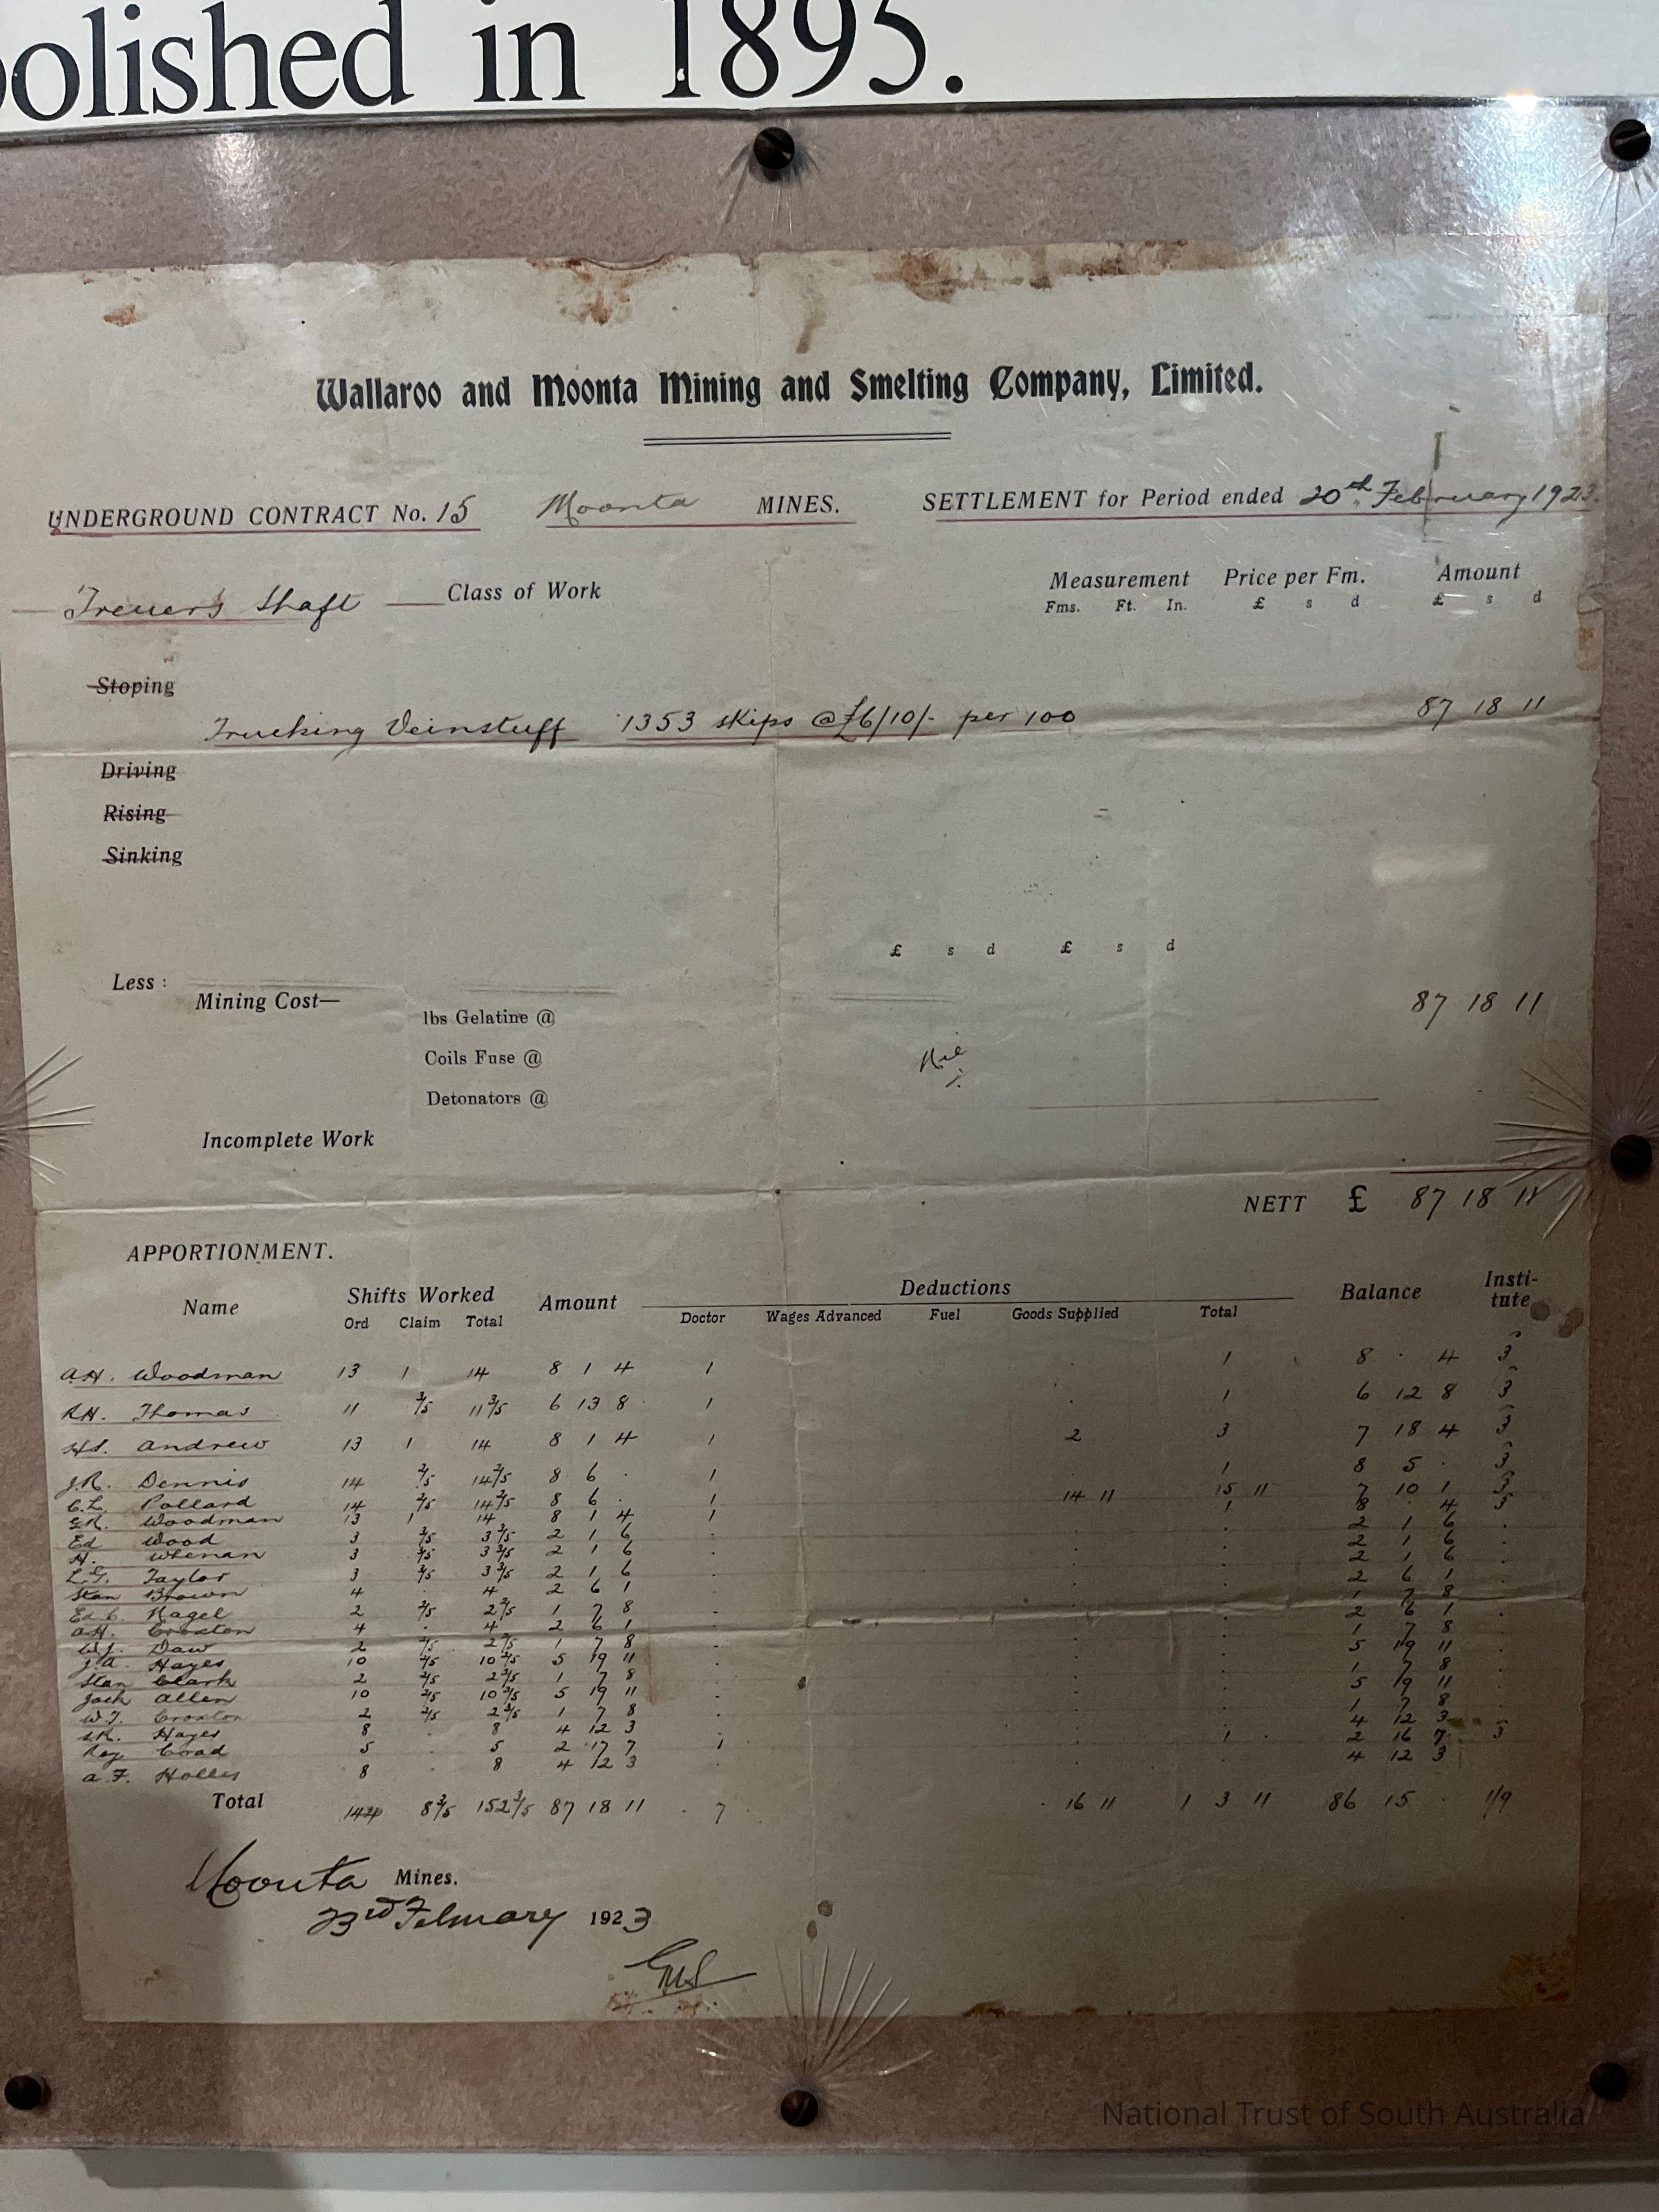 polished in 1895.
Wallaroo and Moonta Mining and Smelting Company, Limited.
UNDERGROUND CONTRACT No. 15 Moonta MINES. SETTLEMENT for Period ended 20th February 1923.
Treuer's Shaft Class of Work Measurement Price per Fm. Amount
Fms. Ft. In. £ s d £ s d
Stoping
Trucking Veinstuff 1353 skips @ £6/10/- per 100 87 18 11
Driving
Rising
Sinking
£ s d £ s d
Less :
Mining Cost— 87 18 11
lbs Gelatine @
Coils Fuse @ Nil
Detonators @
Incomplete Work
NETT £ 87 18 11
APPORTIONMENT.
Name Shifts Worked Amount Deductions Balance Insti-tute
Ord Claim Total Doctor Wages Advanced Fuel Goods Supplied Total
A.H. Woodman 13 1 14 8 1 4 1 1 8 . 4 3
R.H. Thomas 11 3/5 11 3/5 6 13 8 1 1 6 12 8 3
H.S. Andrew 13 1 14 8 1 4 1 2 3 7 18 4 3
J.R. Dennis 14 2/5 14 2/5 8 6 . 1 1 8 5 . 3
C.L. Pollard 14 2/5 14 2/5 8 6 . 1 14 11 15 11 7 10 1 3
G.R. Woodman 13 1 14 8 1 4 1 1 8 . 4 3
Ed Wood 3 3/5 3 3/5 2 1 6 2 1 6
H. Whenan 3 3/5 3 3/5 2 1 6 2 1 6
L.G. Taylor 3 3/5 3 3/5 2 1 6 2 1 6
Stan Brown 4 . 4 2 6 1 2 6 1
Ed. C. Nagel 2 2/5 2 2/5 1 7 8 1 7 8
A.H. Croxton 4 . 4 2 6 1 2 6 1
W.J. Daw 2 2/5 2 2/5 1 7 8 1 7 8
J.A. Hayes 10 2/5 10 2/5 5 19 11 5 19 11
Stan Clark 2 2/5 2 2/5 1 7 8 1 7 8
Jack Allen 10 2/5 10 2/5 5 19 11 5 19 11
W.T. Croxton 2 2/5 2 2/5 1 7 8 1 7 8
Hayes 8 . 8 4 12 3 4 12 3
Rey Coad 5 . 5 2 17 7 1 1 2 16 7 3
A.F. Holles 8 8 4 12 3 4 12 3
Total 144 8 3/5 152 3/5 87 18 11 7 16 11 1 3 11 86 15 . 1/9
Moonta Mines.
23rd February 1923
National Trust of South Australia